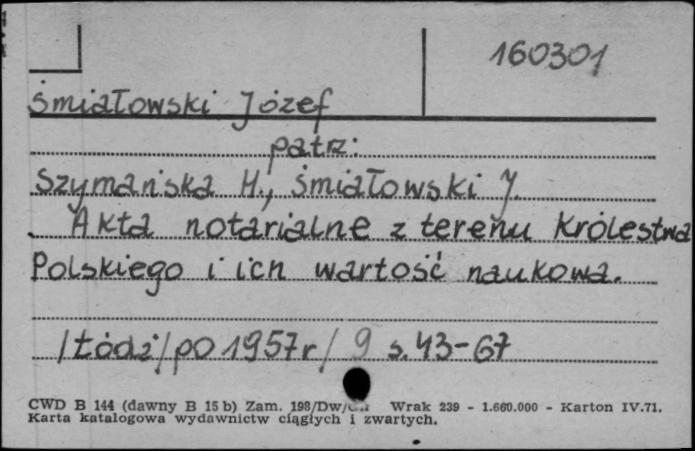 160301
Śmiałowski Józef
patrz:
Szymańska H., Śmiałowski J.
Akta notarialne z terenu Królestwa
Polskiego i ich wartość naukowa.
/Łódź/po 1957r/ 9 s. 43-67
CWD B 144 (dawny B 15 b) Zam. 198/Dw/ Wrak 239 - 1.660.000 - Karton IV.71.
Karta katalogowa wydawnictw ciągłych i zwartych.